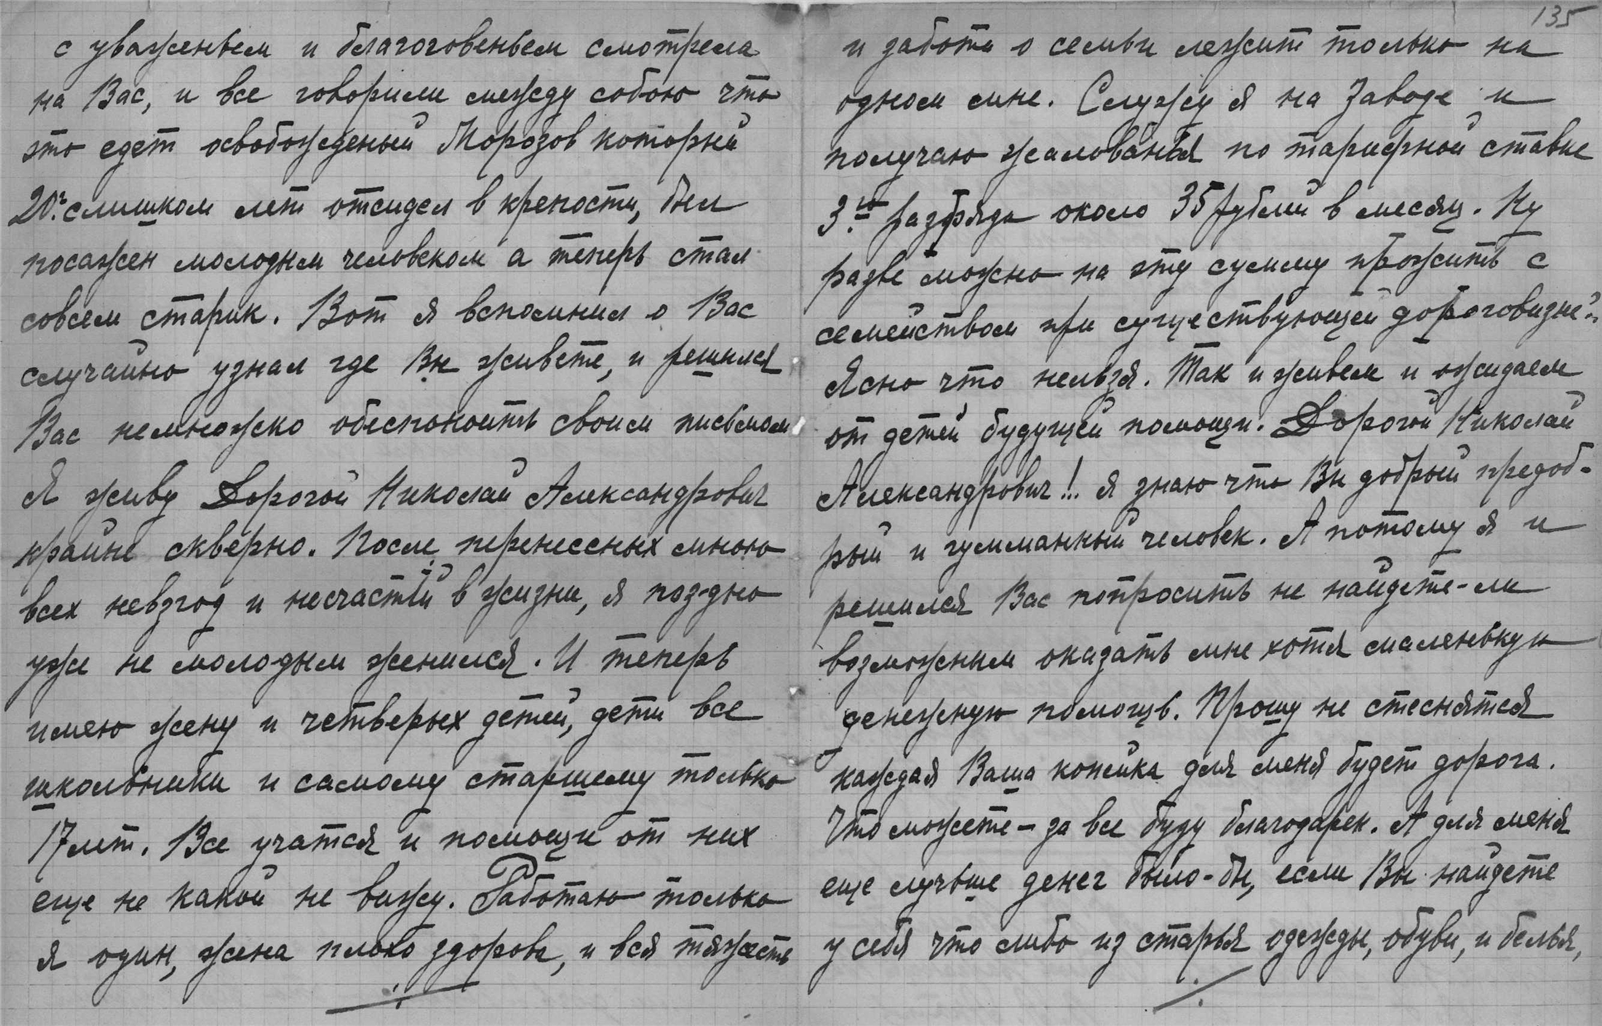 с уваженьем и благоговеньем смотрела
на Вас, и все говорили между собою что
это едет освобожденый Морозов который
20ть слишком лет отсидел в крепости, был
посажен молодым человеком а теперь стал
совсем старик. Вот я вспомнил о Вас
случайно узнал где Вы живете, и решился
Вас немножко обеспокоить своим письмом
Я живу Дорогой Николай Александрович
крайне скверно. После перенесеных мною
всех невзгод и несчастий в жизни, я поздно
уже не молодым женился. И теперь
имею жену и четверых детей, дети все
школьники и самому старшему только
17 лет. Все учатся и помощи от них
еще не какой не вижу. Работаю только
я один, жена плохо здорова, и вся тяжесть
135
и забота о семьи лежит только на
одном мне. Служу я на Заводе и
получаю жалованья по тарифной ставке
3го разряда около 35 рублей в месяц. Ну
разве можно на эту сумму прожить с
семейством при существующей дороговизне?
Ясно что нельзя. Так и живем и ожидаем
от детей будущей помощи. Дорогой Николай
Александрович!.. я знаю что Вы добрый предоб-
рый и гумманный человек. А потому я и
решился Вас попросить не найдете-ли
возможным оказать мне хотя маленькую
денежную помощь. Прошу не стеснятся
каждая Ваша копейка для меня будет дорога.
Что можете – за все буду благодарен. А для меня
еще лучьше денег было-бы, если Вы найдете
у себя что либо из старья одежды, обуви, и белья,